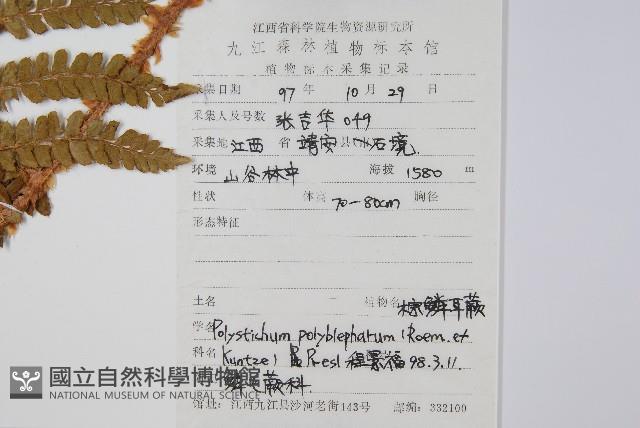 江西省科学院生物资源研究所
九江森林植物标本馆
植物标本采集记录
采集日期 97 年 10 月 29 日
采集人及号数 张吉华 049
采集地 江西 省 靖安 县 石境
环境 山谷林中 海拔 1580 m
性状 体高 70—80cm 胸径
形态特征
土名 植物名 棕鳞耳蕨
学名 Polystichum polyblepharum (Roem. et
科名 Kuntze) Presl 程景福 98.3.11.
鳞毛蕨科
馆址: 江西九江县沙河老街143号 邮编: 332100
國立自然科學博物館
NATIONAL MUSEUM OF NATURAL SCIENCE